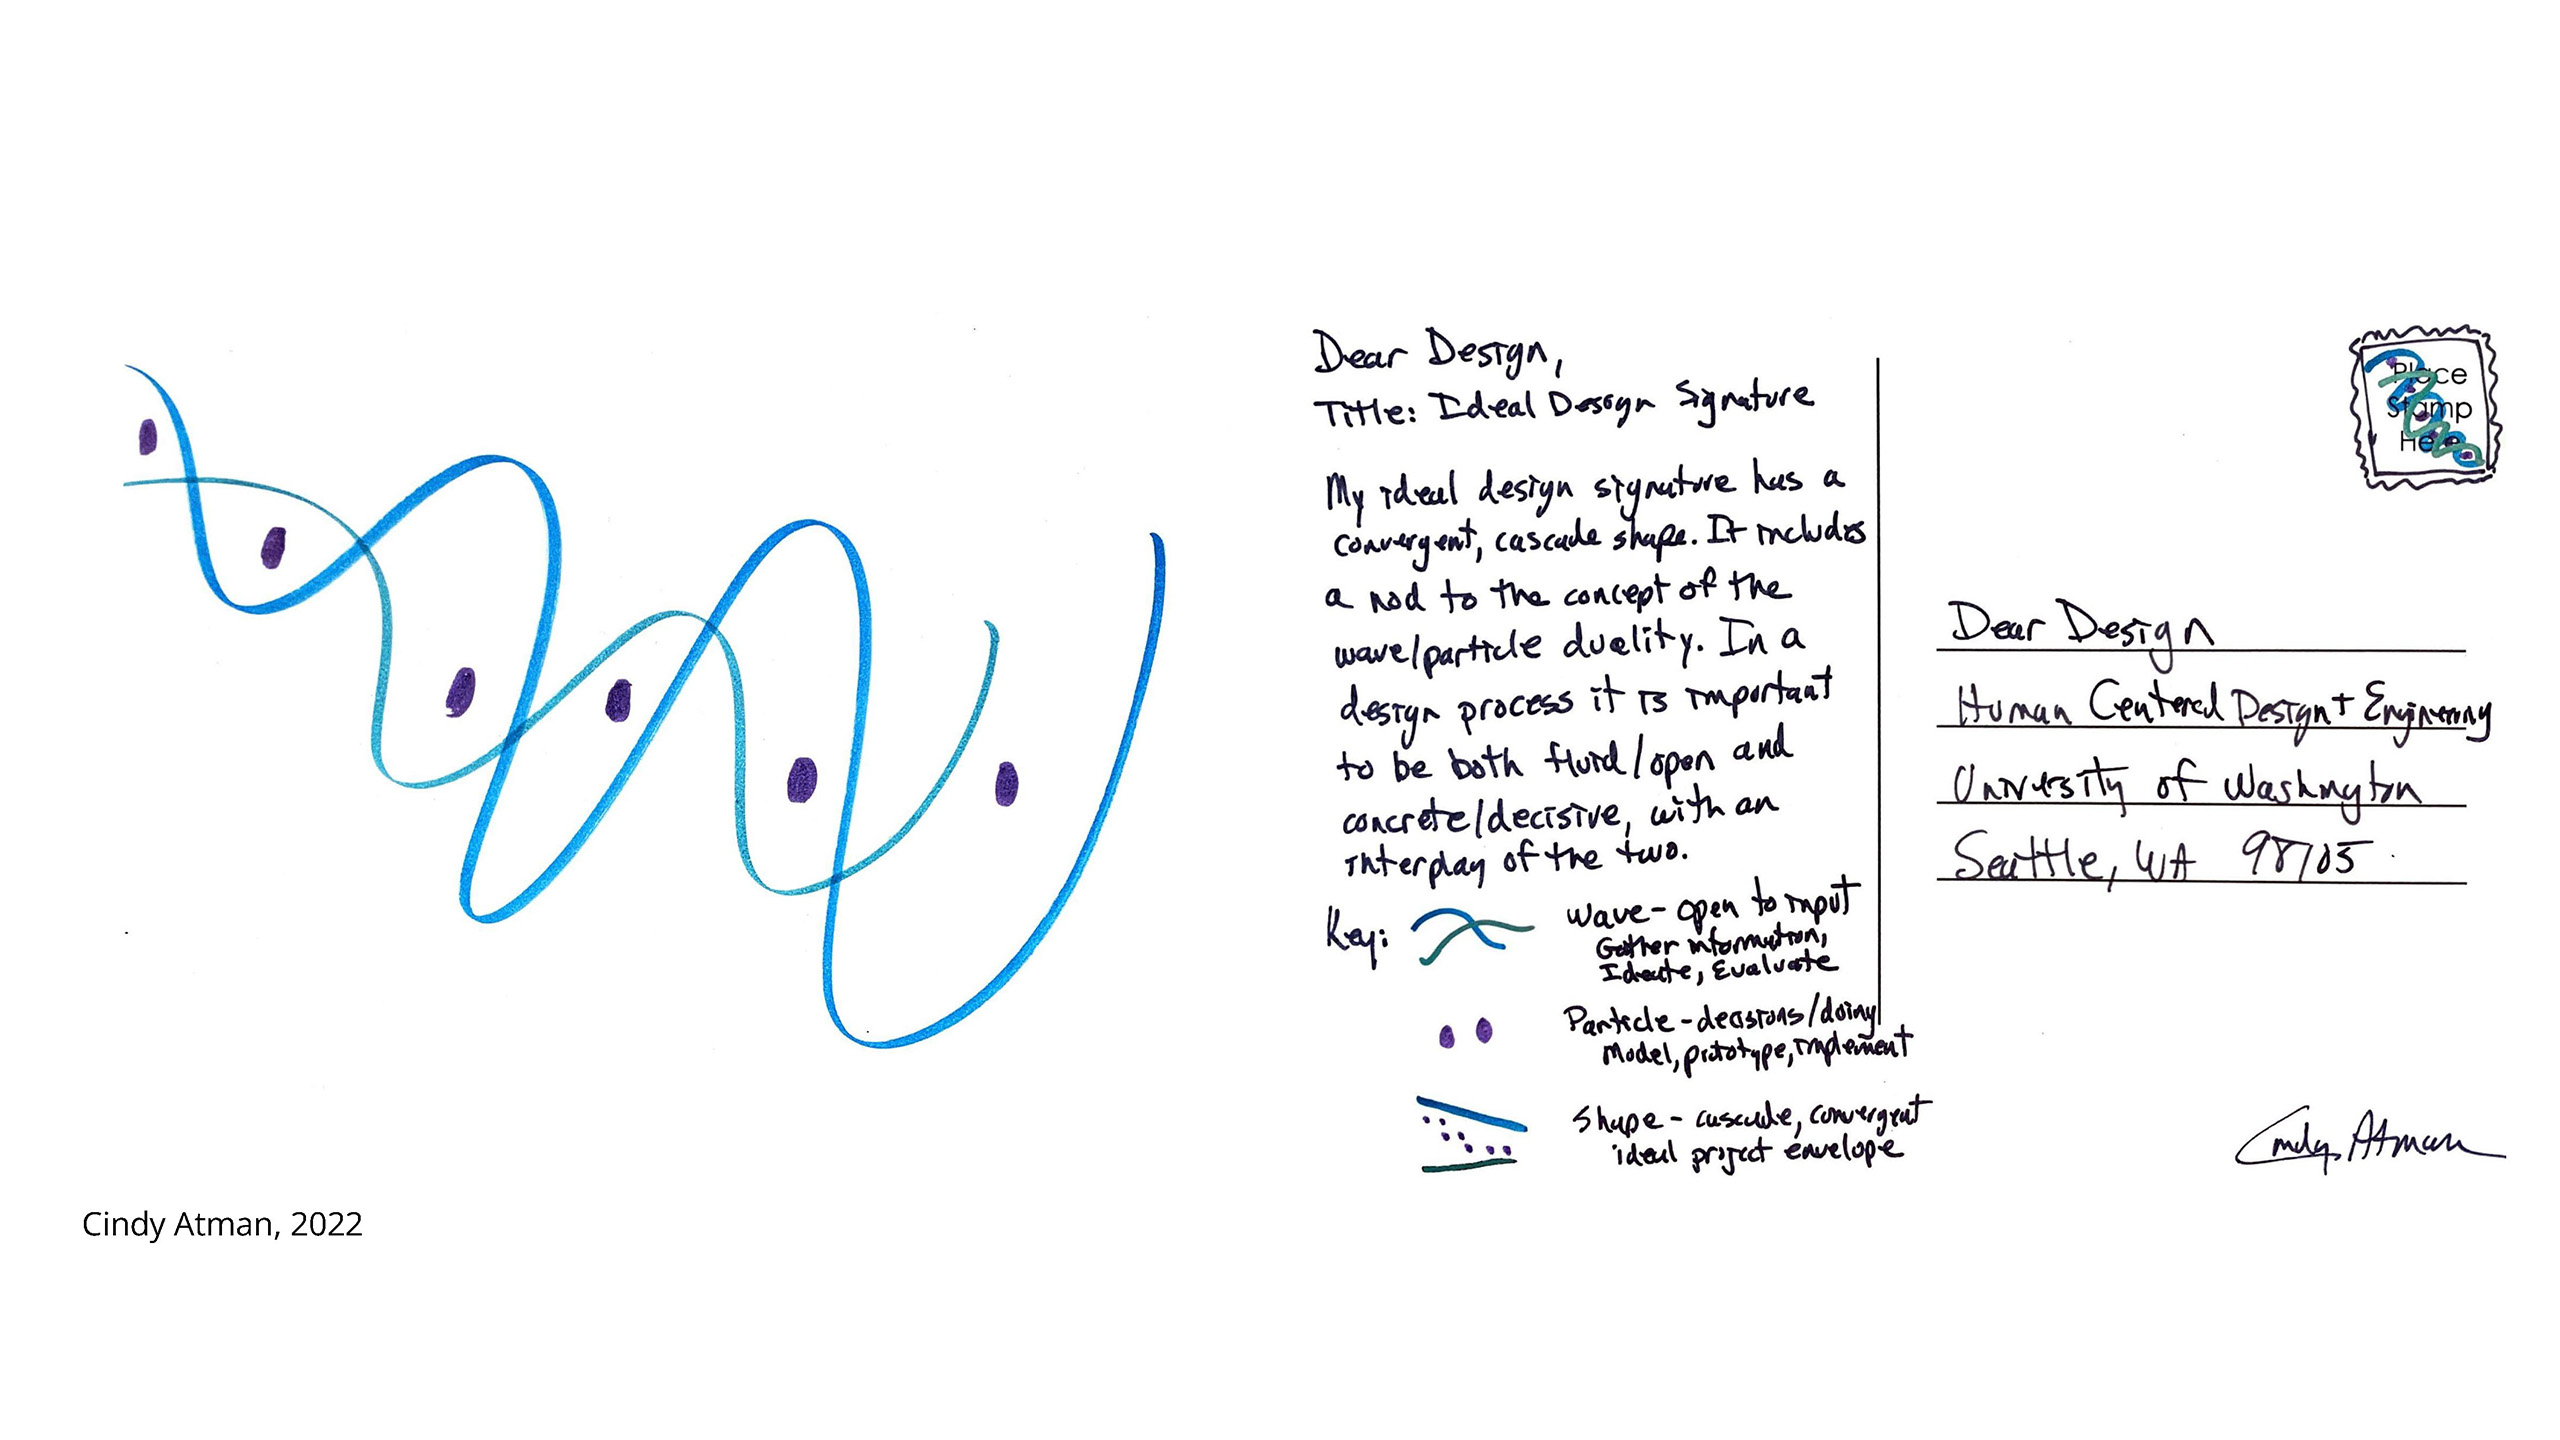 Dear Design,
Title: Ideal Design Signature
My ideal design signature has a
convergent, cascade shape. It includes
a nod to the concept of the
wave/particle duality. In a
design process it is important
to be both fluid/open and
concrete/decisive, with an
interplay of the two.
Key:
Wave - open to input
Gather information,
Ideate, Evaluate
Particle - decisions/doing
Model, prototype, implement
Shape - cascade, convergent
ideal project envelope
Place
Stamp
Here
Dear Design
Human Centered Design + Engineering
University of Washington
Seattle, WA 98105
Cindy Atman
Cindy Atman, 2022